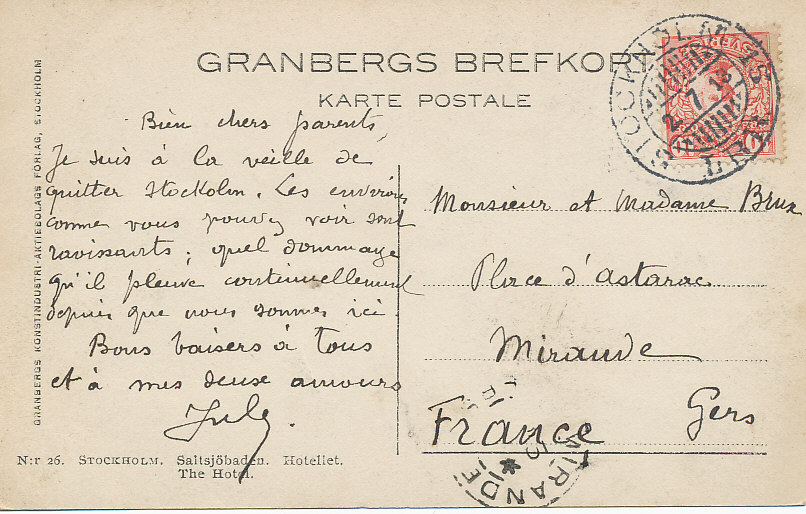 GRANBERGS BREFKORT
KARTE POSTALE
GRANBERGS KONSTINDUSTRI-AKTIEBOLAGS FÖRLAG, STOCKHOLM
Bien chers parents,
Je suis à la veille de
quitter Stockolm. Les environs
comme vous pouvez voir sont
ravissants; quel dommage
qu'il pleuve continuellement
depuis que nous sommes ici.
Bons baisers à tous
et à mes deux amours
N:r 26. STOCKHOLM. Saltsjöbaden. Hotellet.
The Hotel.
Monsieur et Madame Brux
Place d'Astarac
Mirande
Gers
France
STOCKHOLM
2.7.13
LBR
MIRANDE